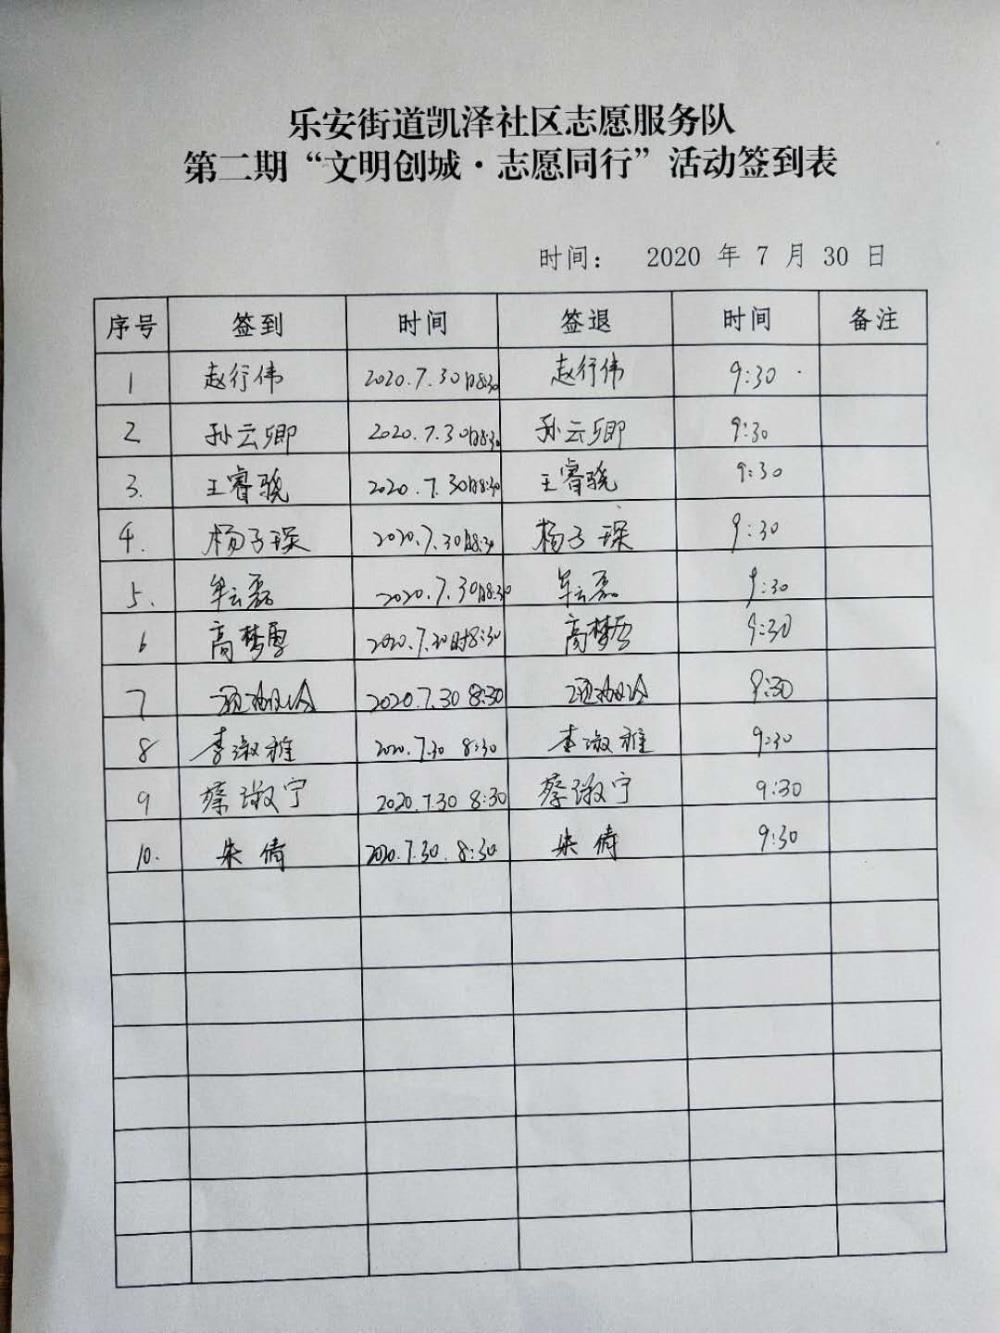 乐安街道凯泽社区志愿服务队
第二期“文明创城·志愿同行”活动签到表
时间： 2020 年 7 月 30 日
序号 签到 时间 签退 时间 备注
1 赵行伟 2020.7.30日8:30 赵行伟 9:30
2 孙云卿 2020.7.30日8:30 孙云卿 9:30
3. 王睿骁 2020.7.30日8:30 王睿骁 9:30
4. 杨子琛 2020.7.30日8:30 杨子琛 9:30
5. 牟云磊 2020.7.30日8:30 牟云磊 9:30
6 高梦雪 2020.7.30日8:30 高梦雪 9:30
7 2020.7.30 8:30 9:30
8 李淑雅 2020.7.30 8:30 李淑雅 9:30
9 蔡淑宁 2020.7.30 8:30 蔡淑宁 9:30
10. 朱倩 2020.7.30. 8:30 朱倩 9:30